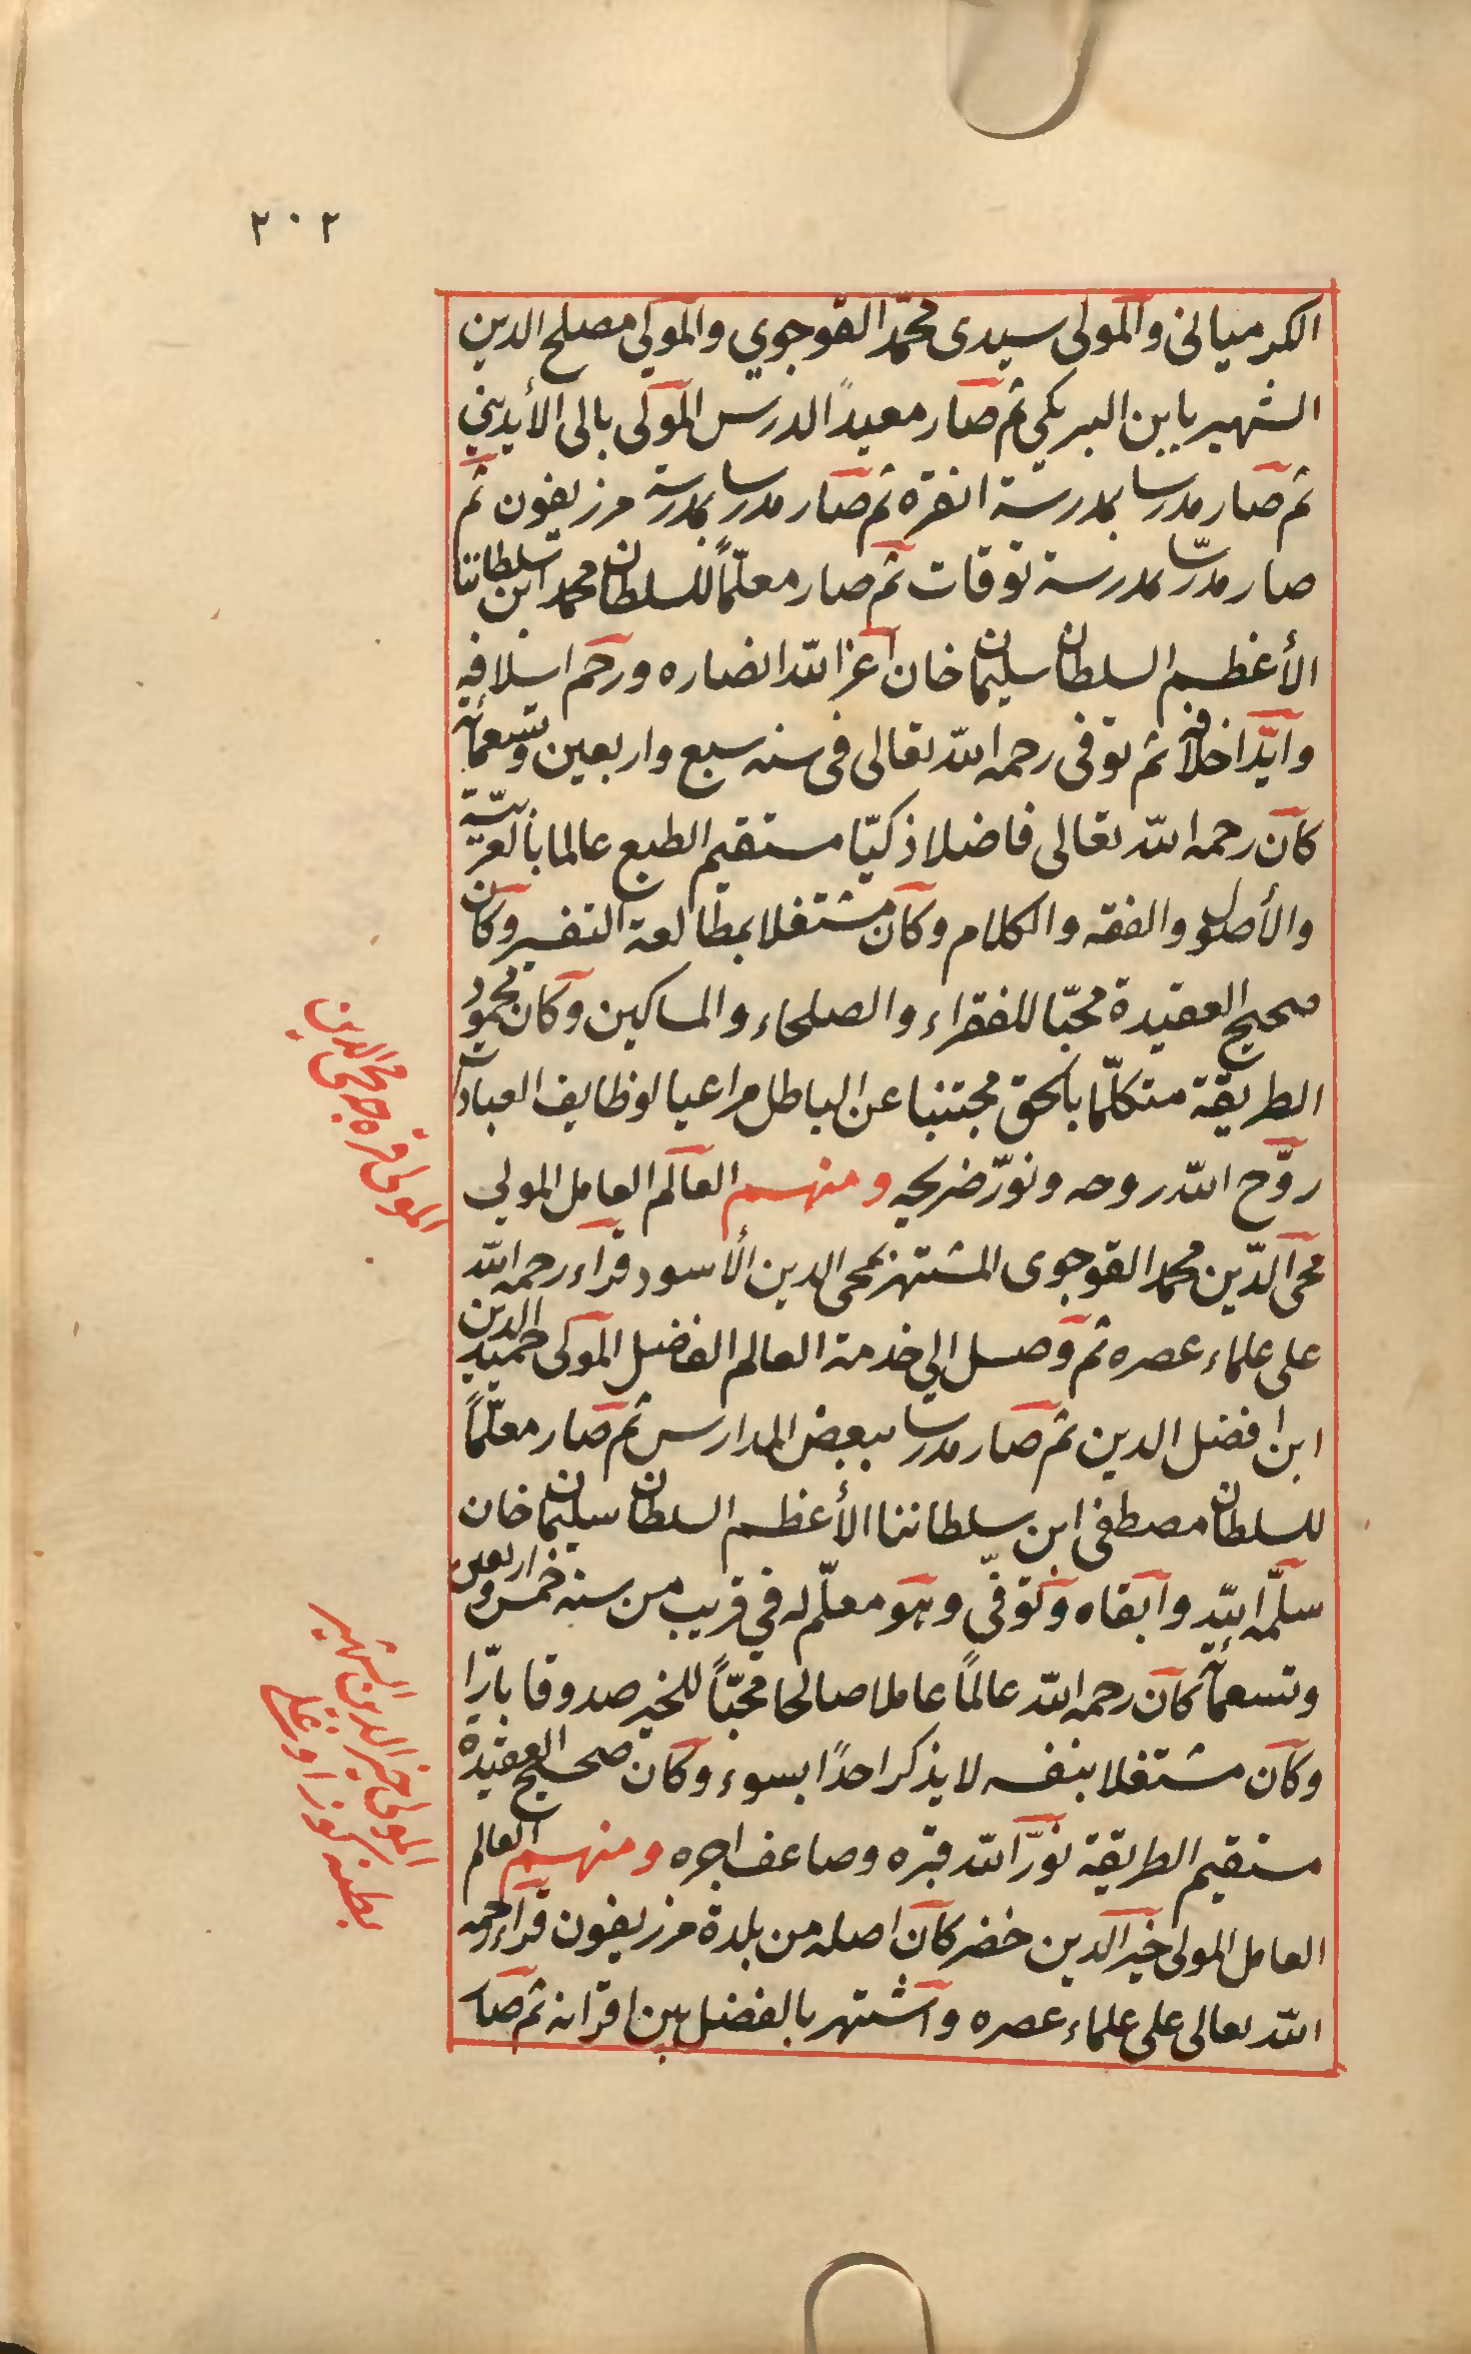 ٢٠٢
الكرميانى والمولى سيدى محمّد القوجوي والمولى مصلح الدين
الشهير بابن البريكي ثم صار معيداً لدرس المولى بالى الأيديني
ثم صار مدرسا بمدرسة انقره ثم صار مدرسا بمدرسة مرزيفون ثم
صار مدرّسا بمدرسة توقات ثم صار معلّماً للسلطان محمد ابن سلطاننا
الأعظم السلطان سليمان خان اعز الله انصاره ورحم اسلافه
وايّد اخلافه ثم توفى رحمه الله تعالى فى سنه سبع واربعين وتسعمائة
كان رحمه الله تعالى فاضلا ذكيّا مستقيم الطبع عالما بالعربيّة
والأصول والفقه والكلام وكان مشتغلا بمطالعة التفسير وكان
صحيح العقيدة محبّا للفقراء والصلحاء والمساكين وكان محمود
الطريقة متكلّما بالحق مجتنبا عن الباطل مراعيا لوظايف العبادات
روّح الله روحه ونوّر ضريحه ومنهم العالم العامل المولى
محى الدّين محمد القوجوى المشتهر بمحى الدين الأسود قراء رحمه الله
على علماء عصره ثم وصل الى خدمة العالم الفاضل المولى حميد الدين
ابن افضل الدين ثم صار مدرسا ببعض المدارس ثم صار معلّماً
للسلطان مصطفى ابن سلطاننا الأعظم السلطان سليمان خان
سلّمه الله وابقاه وتوفّى وهو معلّم له في قريب من سنه خمس واربعين
وتسعمائة كان رحمه الله عالماً عاملا صالحا محبّاً للخير صدوقا بارّا
وكان مشتغلا بنفسه لا يذكر احدًا بسوء وكان صحيح العقيدة
مستقيم الطريقة نوّر الله قبره وضاعف اجره ومنهم العالم
العامل المولى خير الدين خضر كان اصله من بلدة مرزيفون قراء رحمه
الله تعالى على علماء عصره واشتهر بالفضل بين اقرانه ثم صار
المولى قره محى الدين
المولى خير الدين الشهير